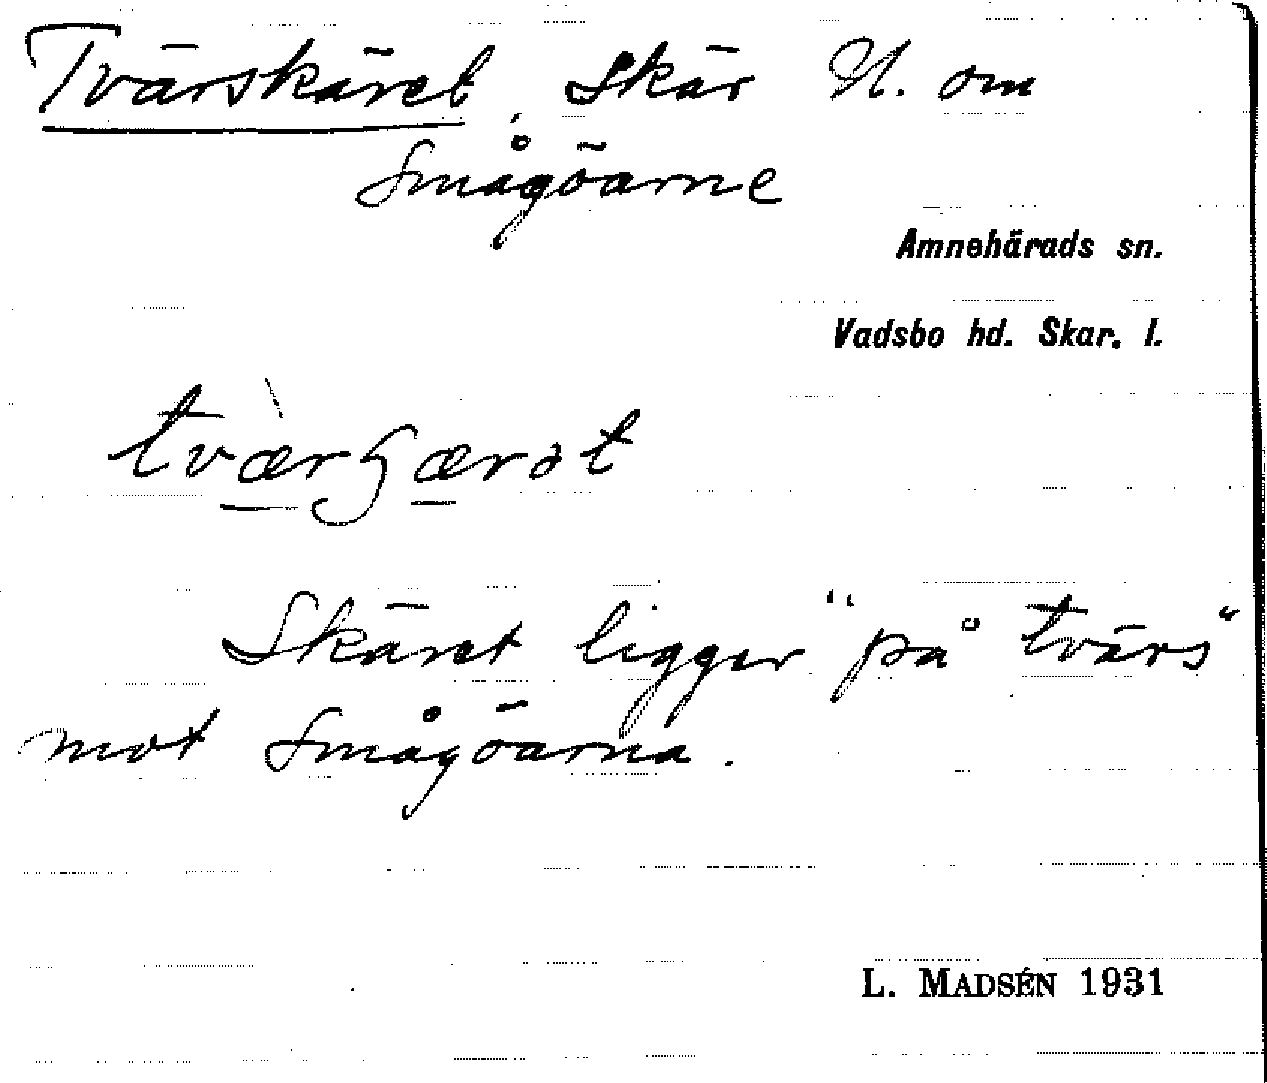 Tvärskäret, Skär N. om
Smågöarne
Amnehärads sn.
Vadsbo hd. Skar. l.
Skäret ligger "på tvärs"
mot Smågöarna.
L. MADSÉN 1931